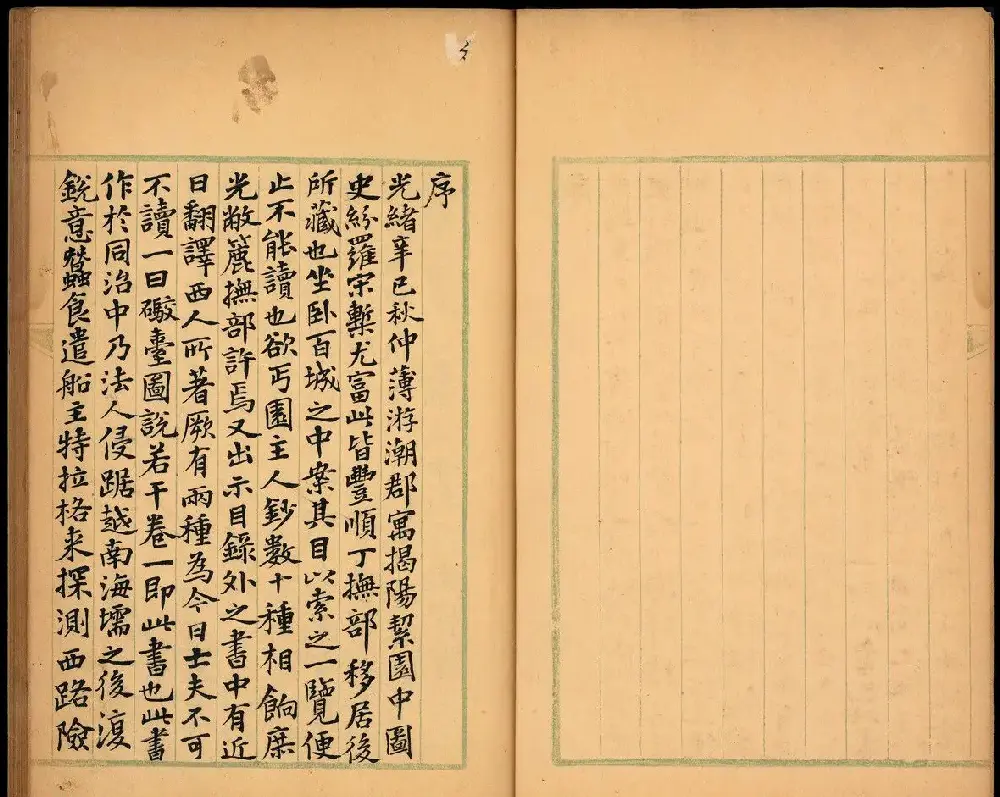 序
光緒辛巳秋仲薄游潮郡寓揭陽絜園中圖
史紛羅宋槧尤富此皆豐順丁撫部移居後
所藏也坐卧百城之中案其目以索之一覽便
止不能讀也欲丐園主人鈔數十種相餉葉
光敞簏撫部許焉又出示目錄外之書中有近
日翻譯西人所著厥有兩種為今日士夫不可
不讀一曰礮臺圖說若干卷一即此書也此書
作於同治中乃法人侵踞越南海壖之後復
銳意蠶食遣船主特拉格来探測西路險